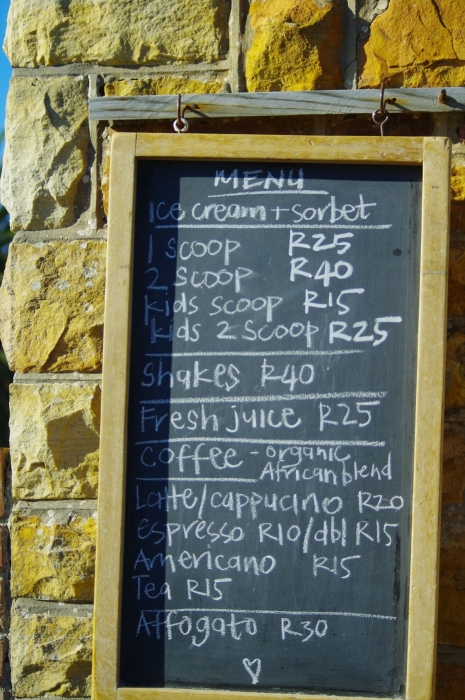 MENU
Ice cream + sorbet
1 scoop R25
2 scoop R40
Kids scoop R15
Kids 2 scoop R25
Shakes R40
Fresh juice R25
coffee - organic
African blend
Latte/cappucino R20
espresso R10/dbl R15
Americano R15
Tea R15
Affogato R30